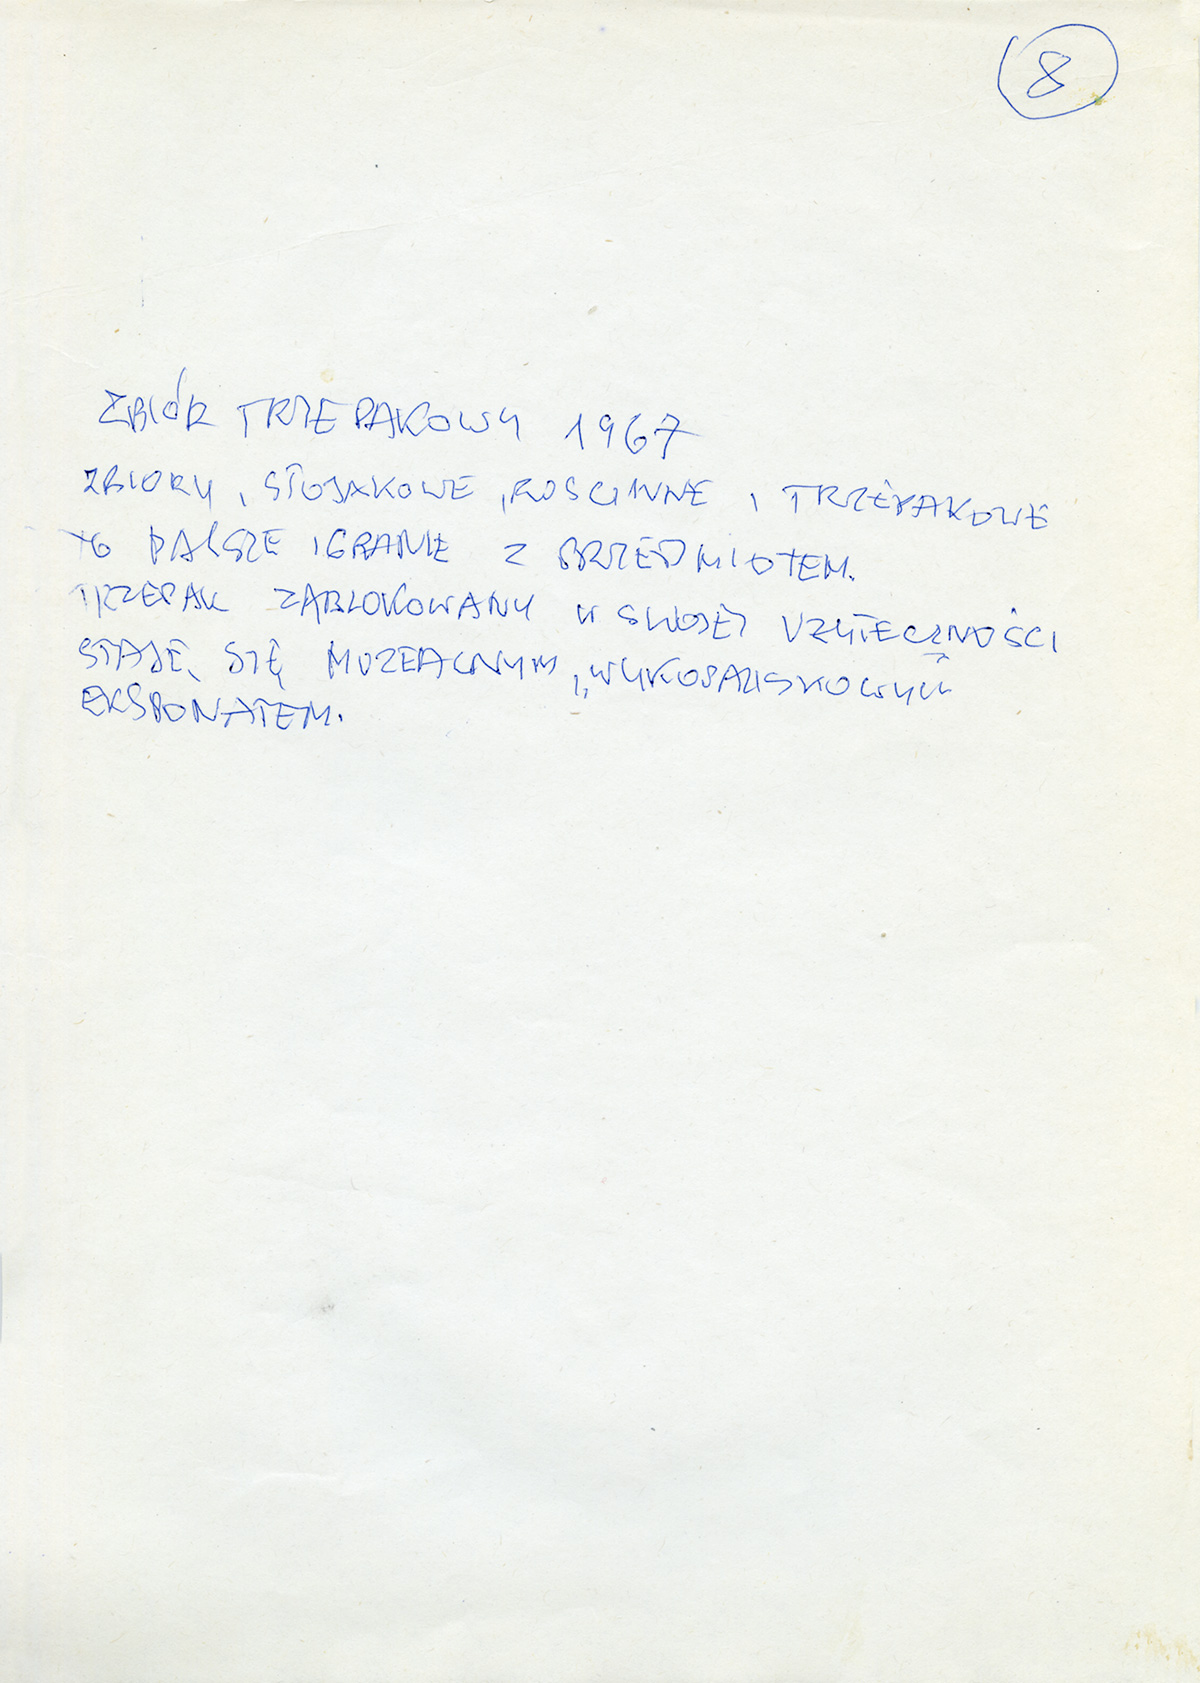 8
ZBIÓR TRZEPAKOWY 1967
ZBIORY, STOJAKOWE, ROŚCINNE I TRZEPAKOWE
TO DALSZE IGRANIE Z PRZEDMIOTEM.
TRZEPAK ZABLOKOWANY W SWOJEJ UŻYTECZNOŚCI
STAJE SIĘ MUZEALNYM, WYKOPALISKOWYM
EKSPONATEM.